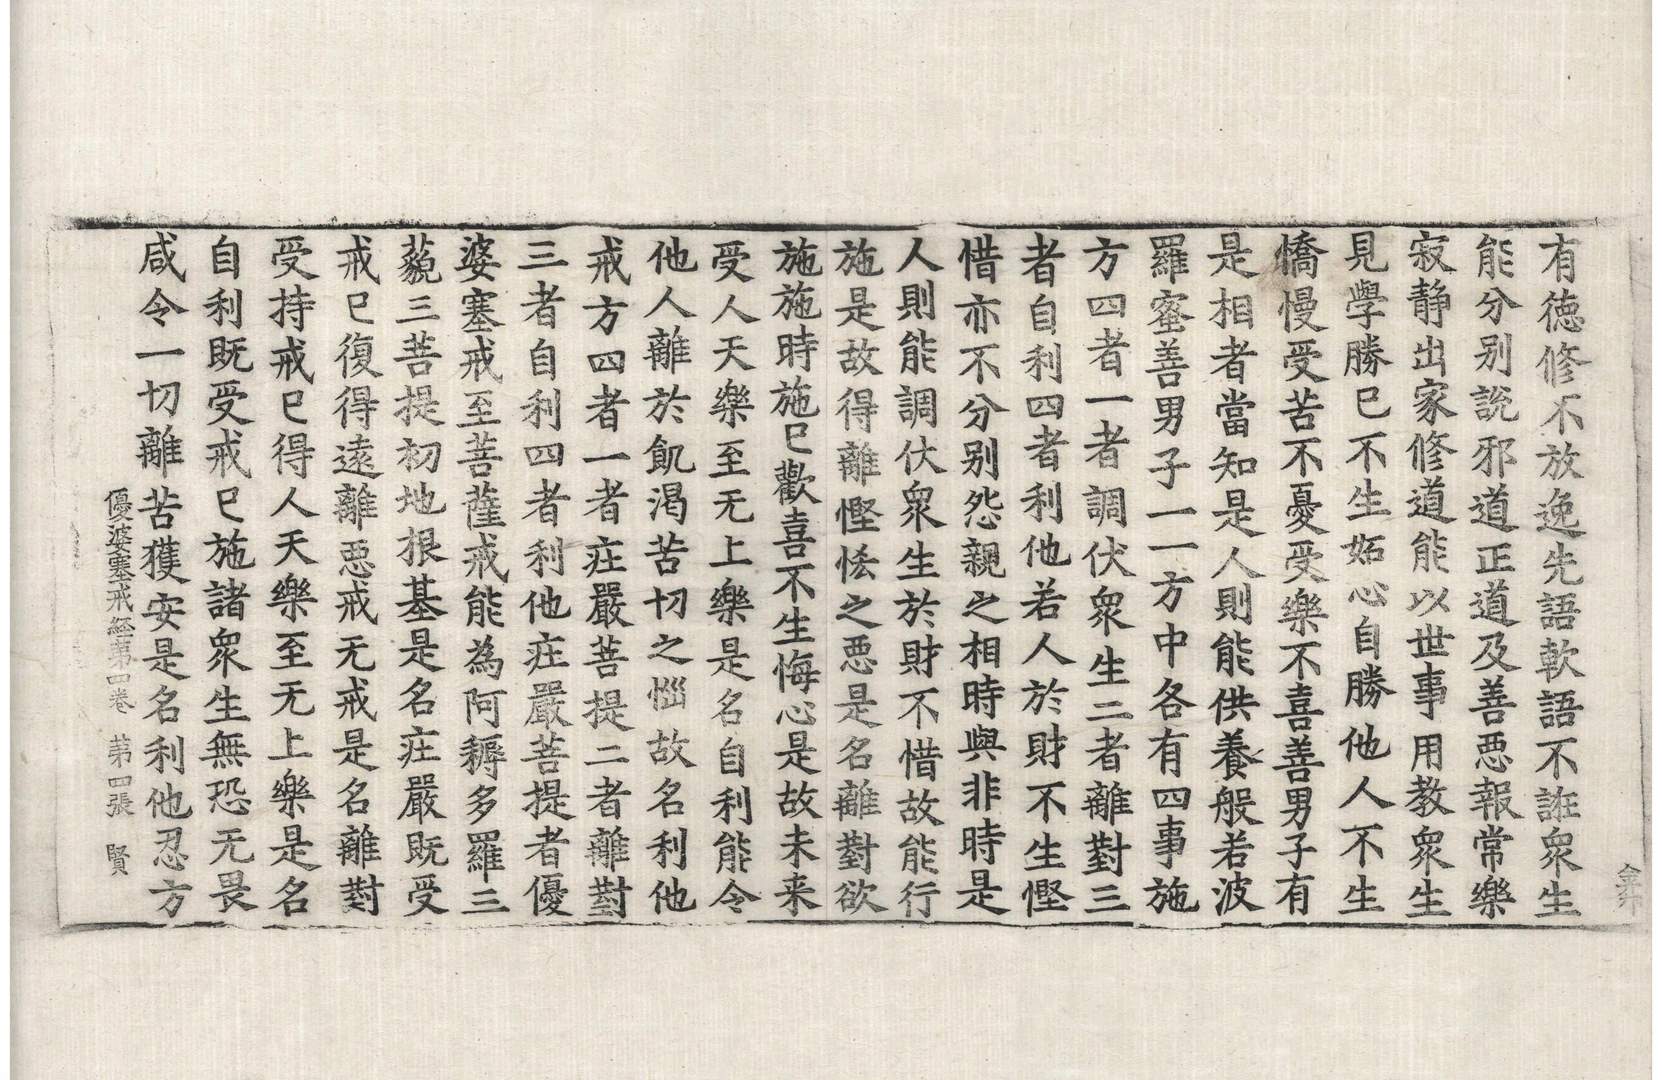 有徳修不放逸先語軟語不誑衆生
能分别說邪道正道及善惡報常樂
寂静出家修道能以世事用教衆生
見學勝巳不生妬心自勝他人不生
憍慢受苦不憂受樂不喜善男子有
是相者當知是人則能供養般若波
羅蜜善男子一一方中各有四事施
方四者一者調伏衆生二者離對三
者自利四者利他若人於財不生慳
惜亦不分别怨親之相時與非時是
人則能調伏衆生於財不惜故能行
施是故得離慳悋之惡是名離對欲
施施時施巳歡喜不生悔心是故未来
受人天樂至无上樂是名自利能令
他人離於飢渇苦切之惱故名利他
戒方四者一者莊嚴菩提二者離對
三者自利四者利他莊嚴菩提者優
婆塞戒至菩薩戒能為阿耨多羅三
藐三菩提初地根基是名莊嚴既受
戒巳復得遠離惡戒无戒是名離對
受持戒巳得人天樂至无上樂是名
自利既受戒巳施諸衆生無恐无畏
咸令一切離苦獲安是名利他忍方
優婆塞戒經第四卷 第四張 賢